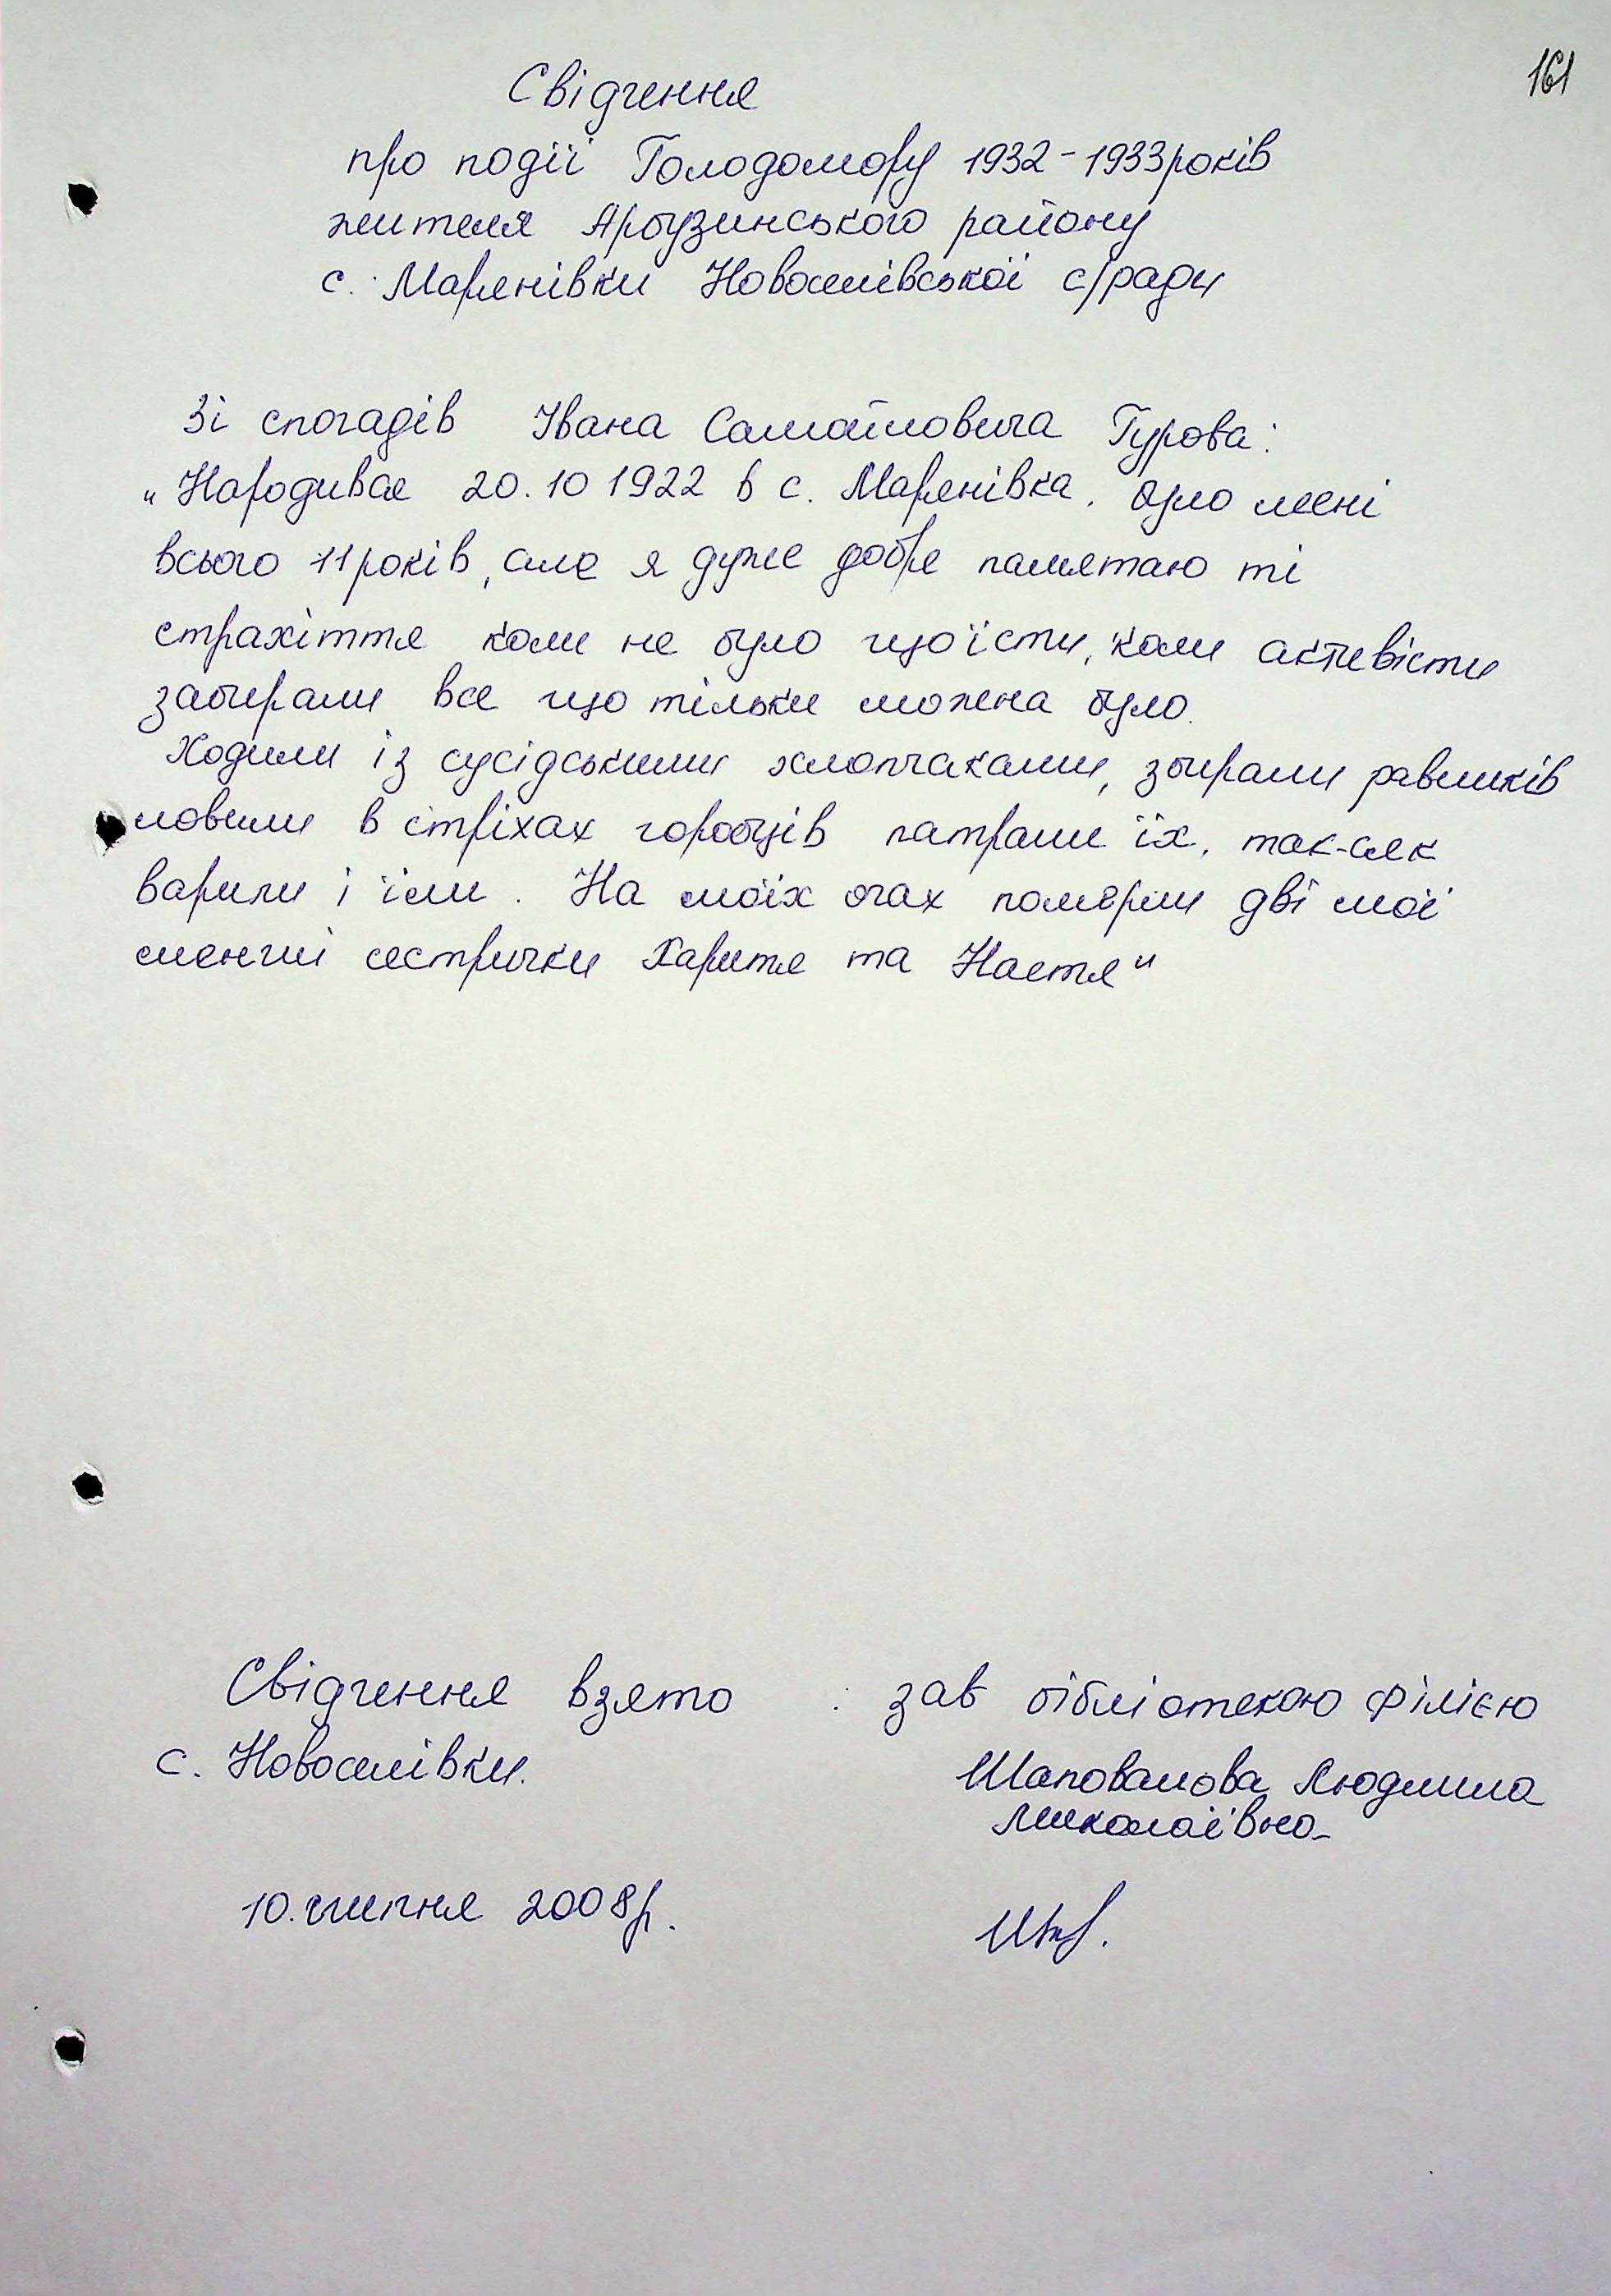 161
Свідчення
про події Голодомору 1932-1933 років
жителя Арбузинського району
с. Мар'янівки Новоселівської с/ради
Зі спогадів Івана Самойловича Гурова:
„Народився 20.10 1922 в с. Мар'янівка. Було мені
всього 11 років, але я дуже добре памятаю ті
страхіття коли не було що їсти, коли активісти
забирали все що тільки можна було.
Ходили із сусідськими хлопчаками, збирали равликів
ловили в стріхах горобців патрали їх, так-сяк
варили і їли. На моїх очах померли дві мої
менші сестрички Харитя та Настя"
Свідчення взято : зав бібліотекою філією
с. Новоселівки. Шаповалова Людмила
Миколаївна
10. липня 2008р.